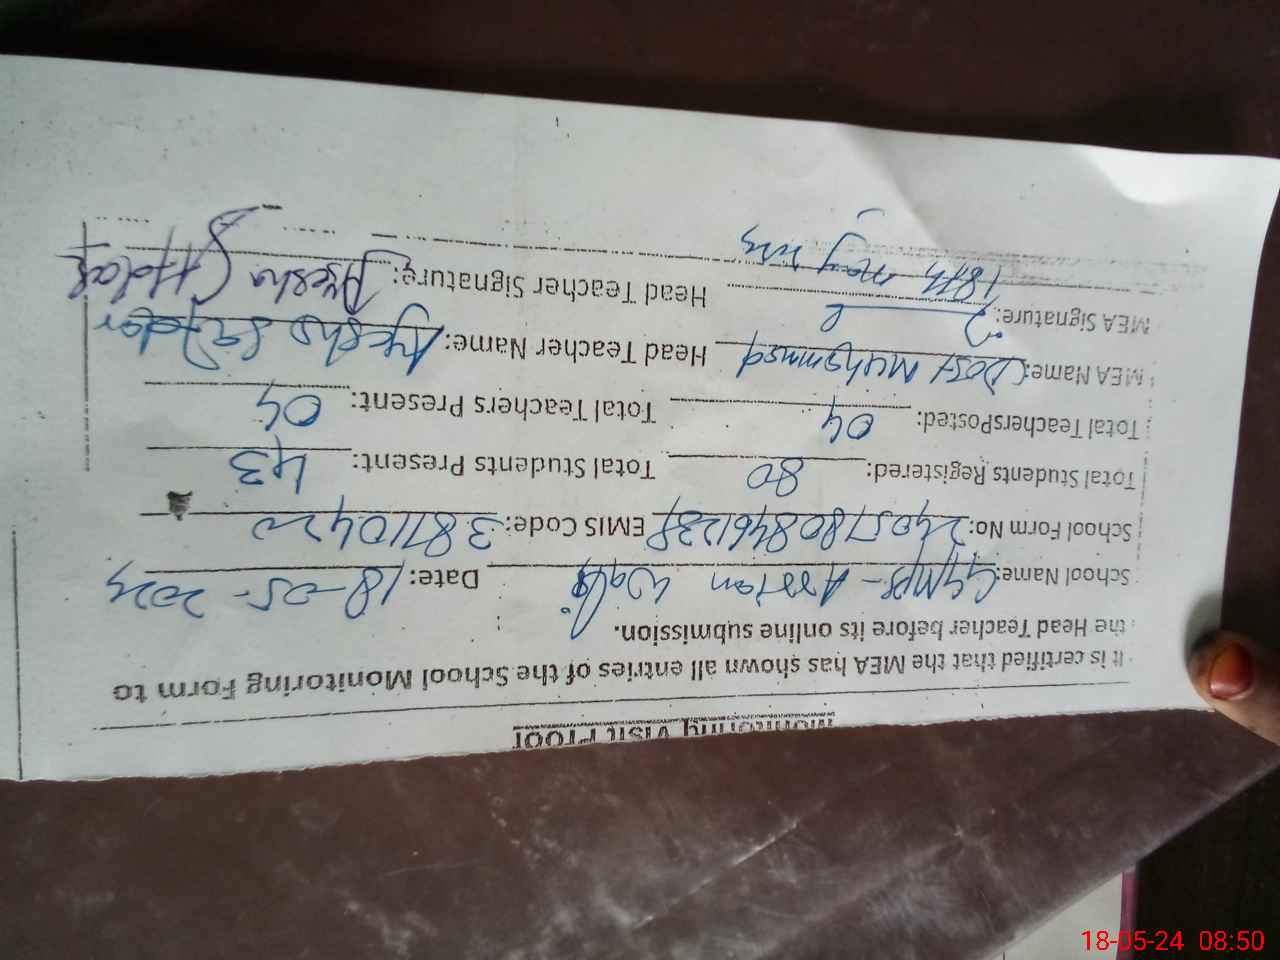 Monitoring Visit Proof
It is certified that the MEA has shown all entries of the School Monitoring Form to
the Head Teacher before its online submission.
School Name: GGMPS - Arotan Wala Date: 18-05-2024
School Form No: EMIS Code: 38710422
Total Students Registered: 80 Total Students Present: 43
Total TeachersPosted: 04 Total Teachers Present: 04
MEA Name: Dost Muhammad Head Teacher Name: Ayesha
MEA Signature: Head Teacher Signature: Ayesha
18th may
18-05-24 08:50